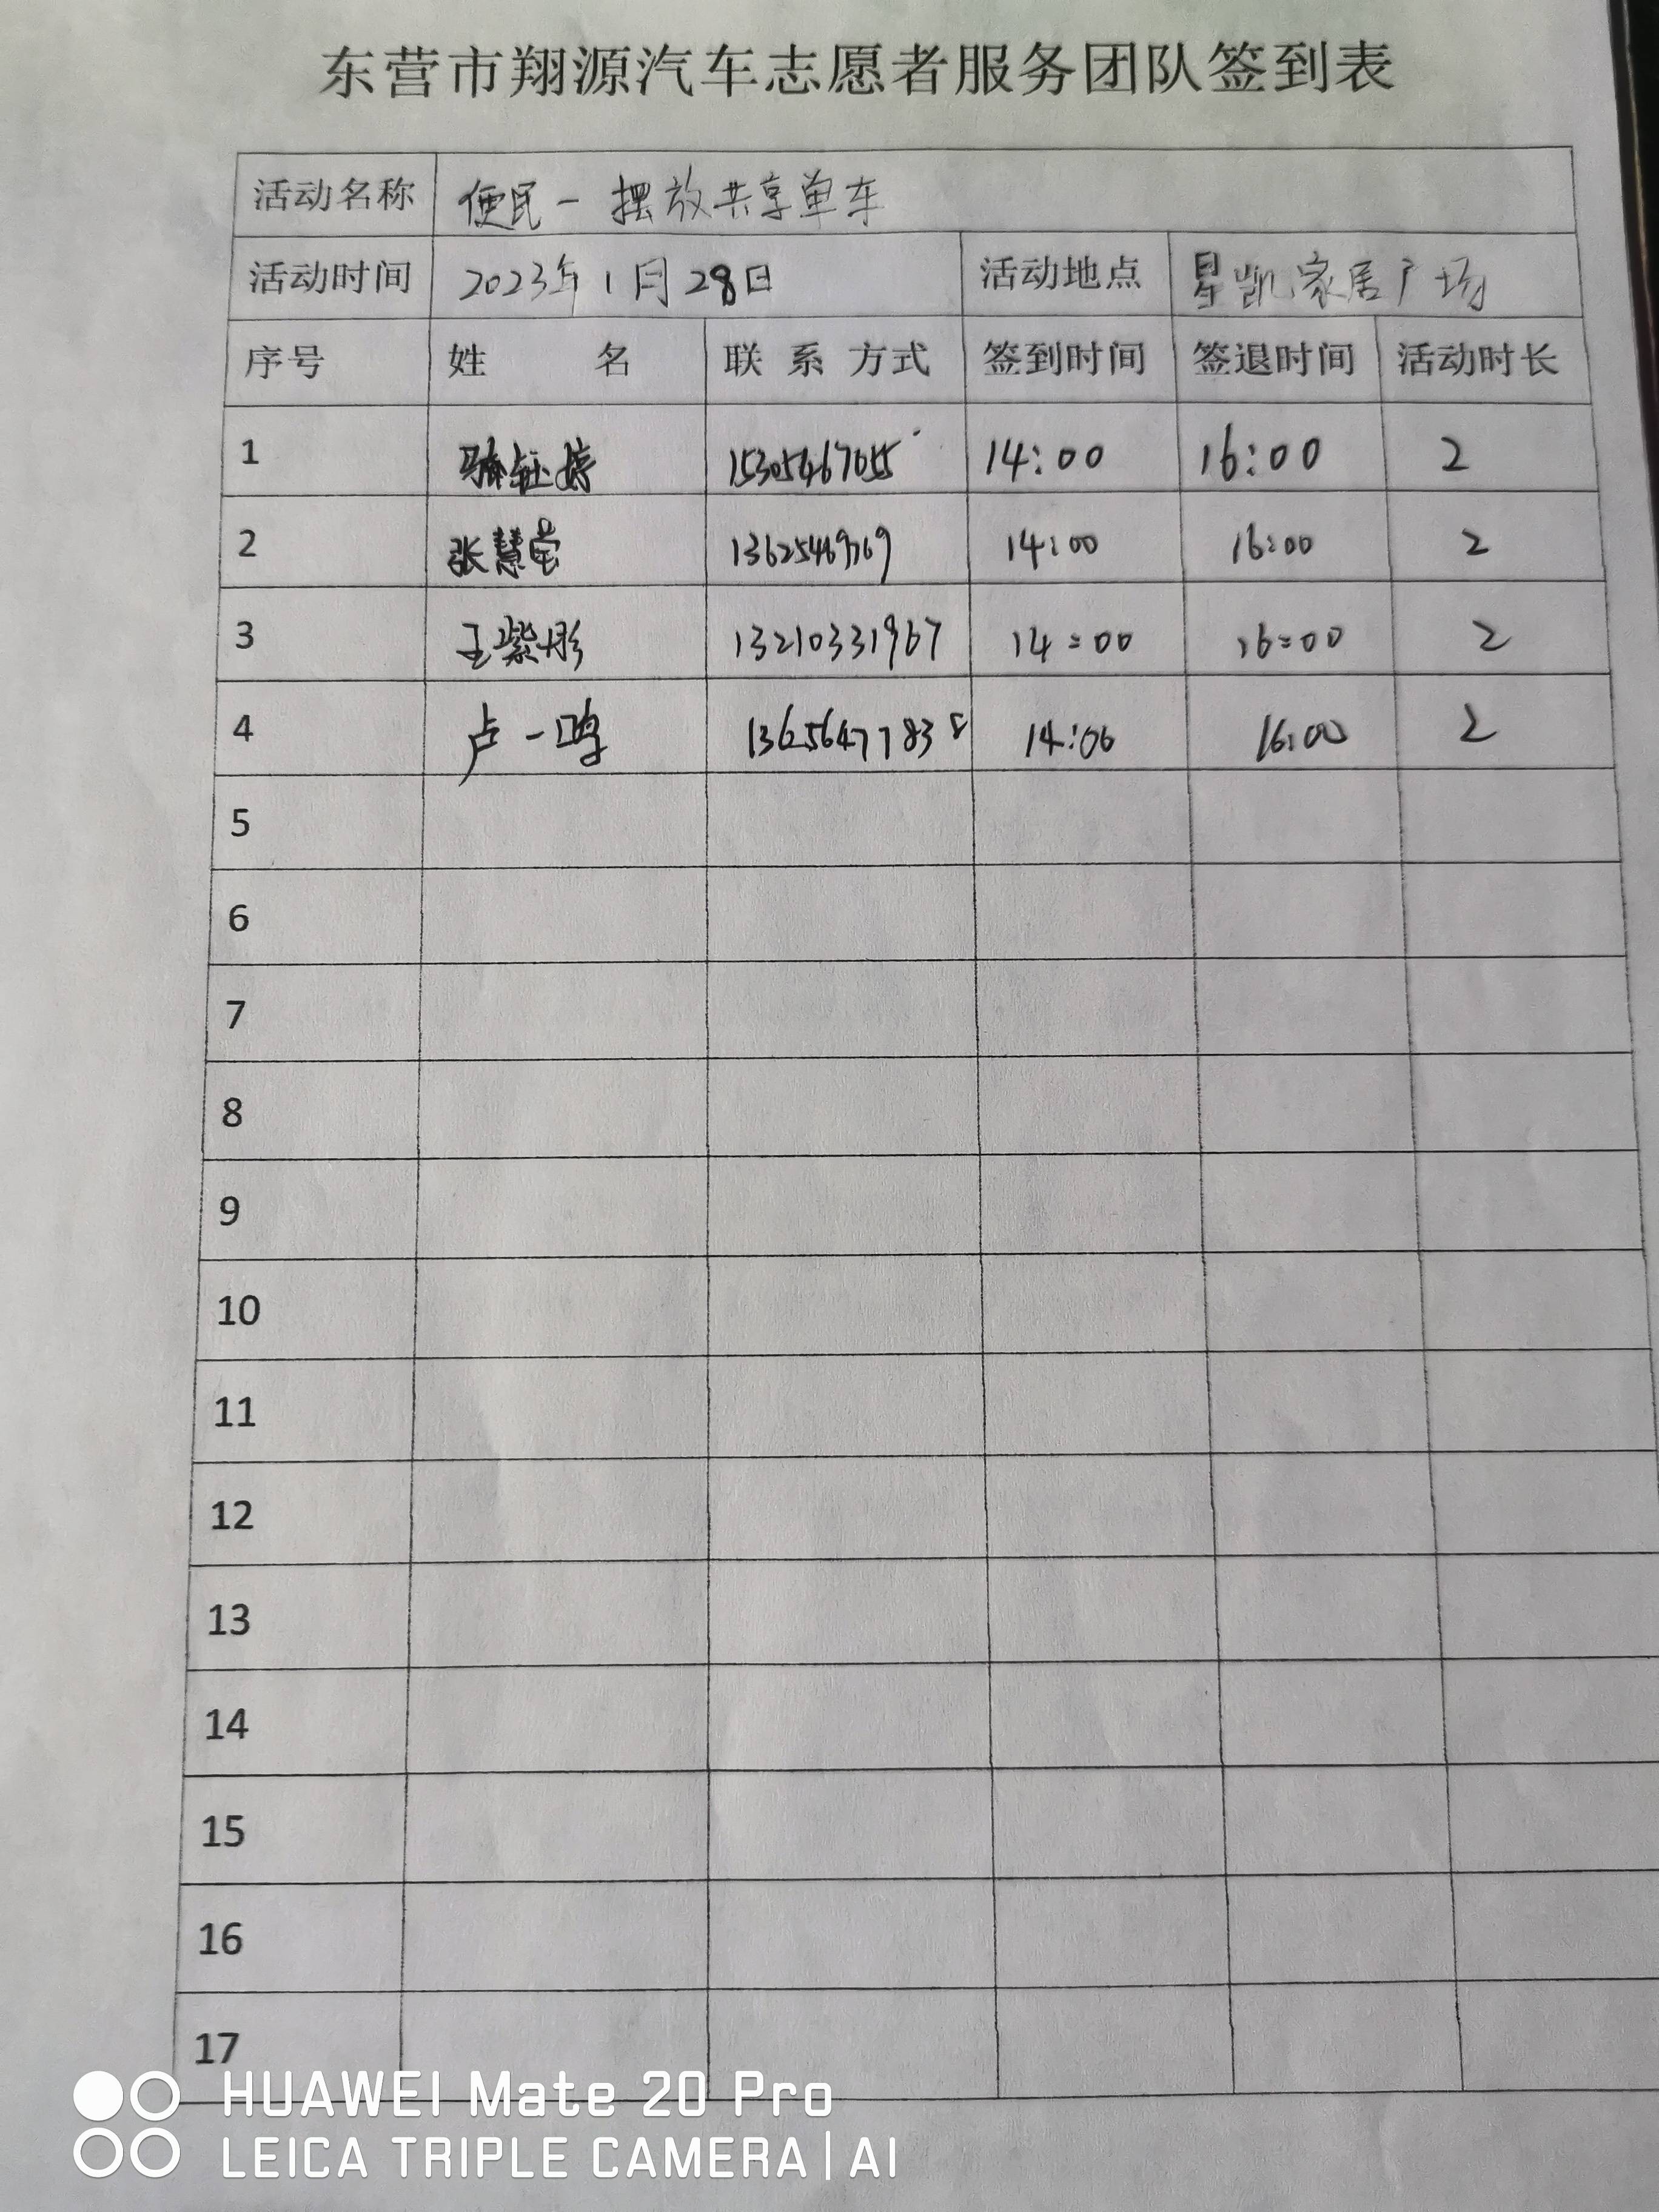 东营市翔源汽车志愿者服务团队签到表
活动名称 便民一摆放共享单车
活动时间 2023年1月28日 活动地点 星凯家居广场
序号 姓 名 联系方式 签到时间 签退时间 活动时长
1 15305467055 14:00 16:00 2
2 张慧莹 14:00 16:00 2
3 王紫彤 13210331967 14:00 16:00 2
4 卢一鸣 13656477838 14:00 16:00 2
5
6
7
8
9
10
11
12
13
14
15
16
17
HUAWEI Mate 20 Pro
LEICA TRIPLE CAMERA | AI